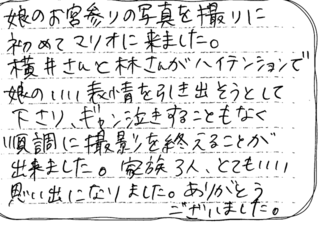 娘のお宮参りの写真を撮りに
初めてマリオに来ました。
横井さんと林さんがハイテンションで
娘のいい表情を引き出そうとして
下さり、ギャン泣きすることもなく
順調に撮影を終えることが
出来ました。家族3人、とてもいい
思い出になりました。ありがとう
ございました。